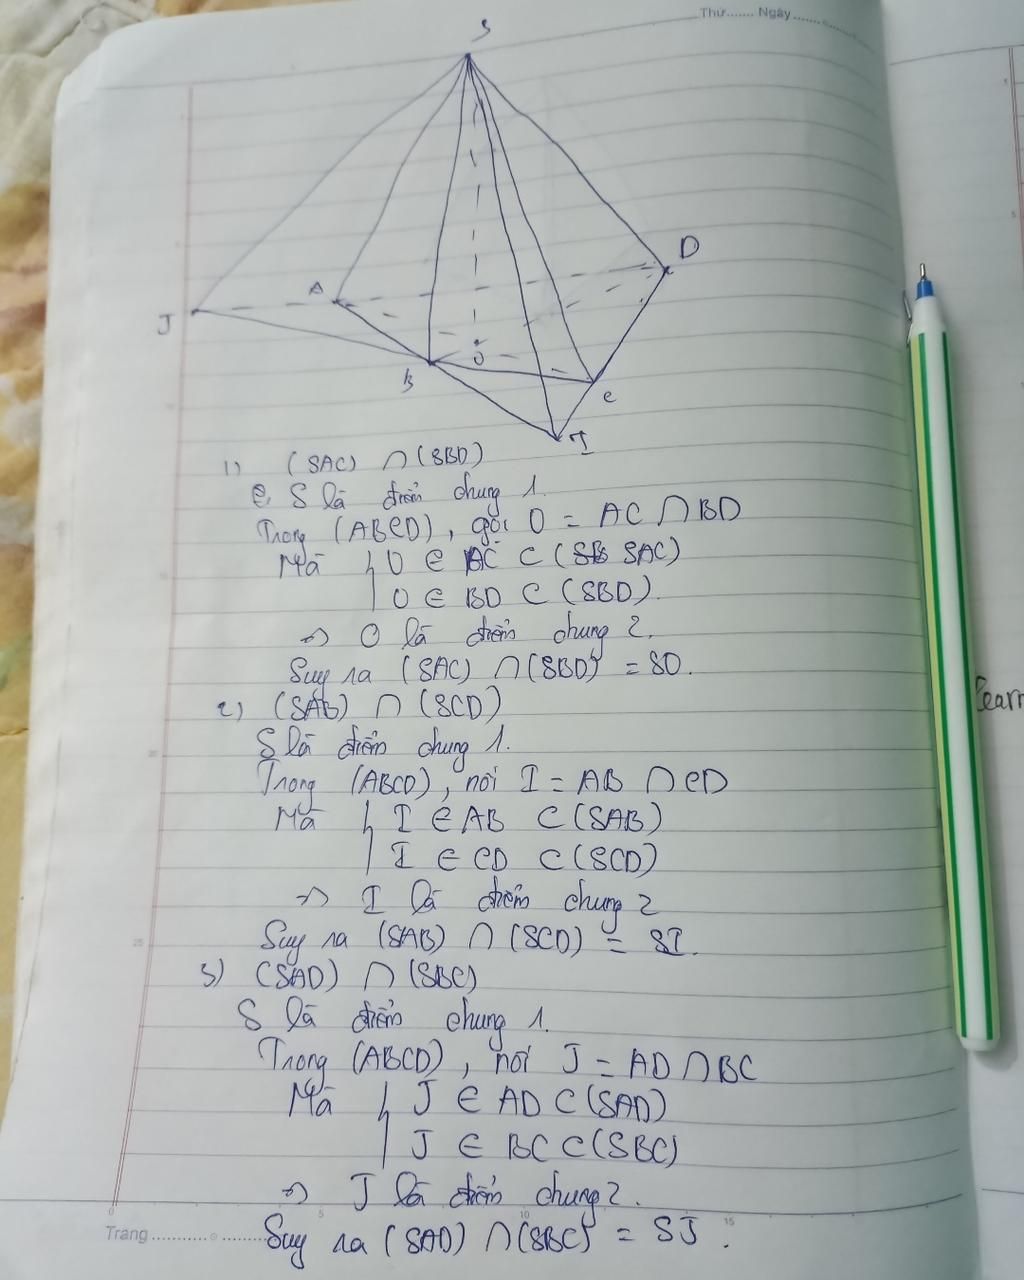 Thứ....... Ngày.......
S
D
A
J
O
B
C
I
1) (SAC) ∩ (SBD)
S là điểm chung 1.
Trong (ABCD), gọi O = AC ∩ BD
Mà { O ∈ AC ⊂ (SAC)
O ∈ BD ⊂ (SBD).
=> O là điểm chung 2.
Suy ra (SAC) ∩ (SBD) = SO.
2) (SAB) ∩ (SCD)
S là điểm chung 1.
Trong (ABCD), nối I = AB ∩ CD
Mà { I ∈ AB ⊂ (SAB)
I ∈ CD ⊂ (SCD)
=> I là điểm chung 2
Suy ra (SAB) ∩ (SCD) = SI.
3) (SAD) ∩ (SBC)
S là điểm chung 1.
Trong (ABCD), nối J = AD ∩ BC
Mà { J ∈ AD ⊂ (SAD)
J ∈ BC ⊂ (SBC)
=> J là điểm chung 2.
Suy ra (SAD) ∩ (SBC) = SJ.
Trang
5 10 15